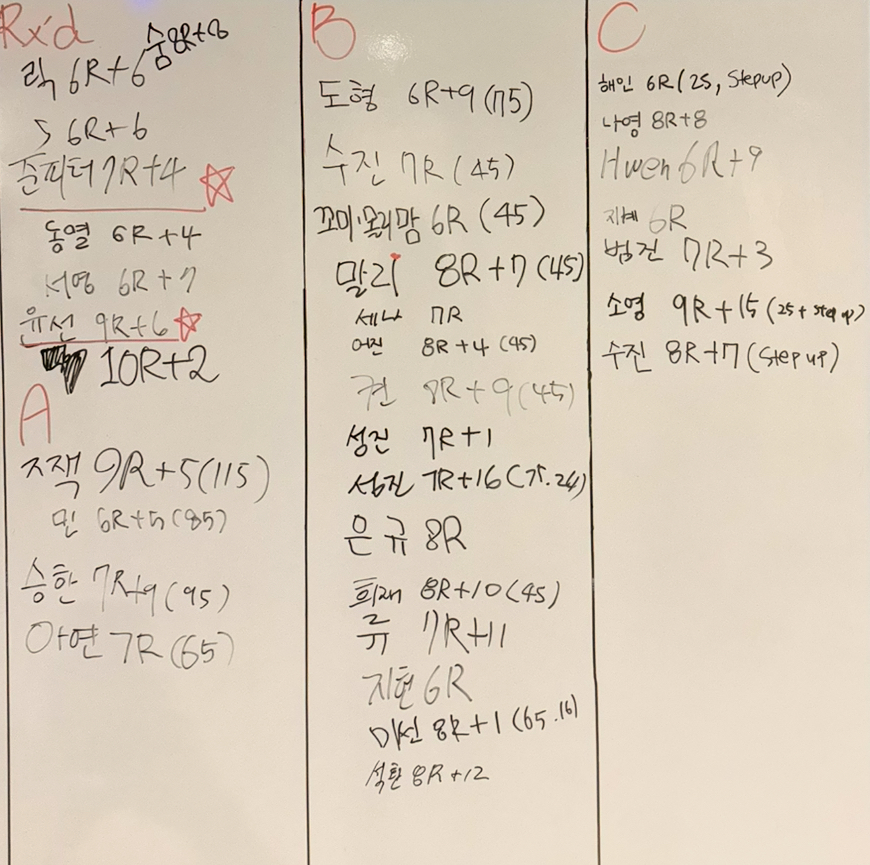 Rx'd
숨 8R+8
락 6R+6
> 6R+6
준피터 7R+4
동열 6R+4
서영 6R+7
윤선 9R+6
10R+2
A
지잭 9R+5(115)
민 6R+5(85)
승한 7R+9(95)
아연 7R(65)
B
도형 6R+9(75)
수진 7R(45)
꼬미·몰리맘 6R(45)
말리 8R+7(45)
세나 7R
어진 8R+4(45)
권 8R+9(45)
성진 7R+1
성진 7R+16(75.24)
은규 8R
희재 8R+10(45)
류 7R+11
지현 6R
미선 8R+1(65.16)
석환 8R+12
C
해인 6R(25, Stepup)
나영 8R+8
Hwen 6R+9
지혜 6R
범진 7R+3
소영 9R+15(25+step up)
수진 8R+7(Step up)